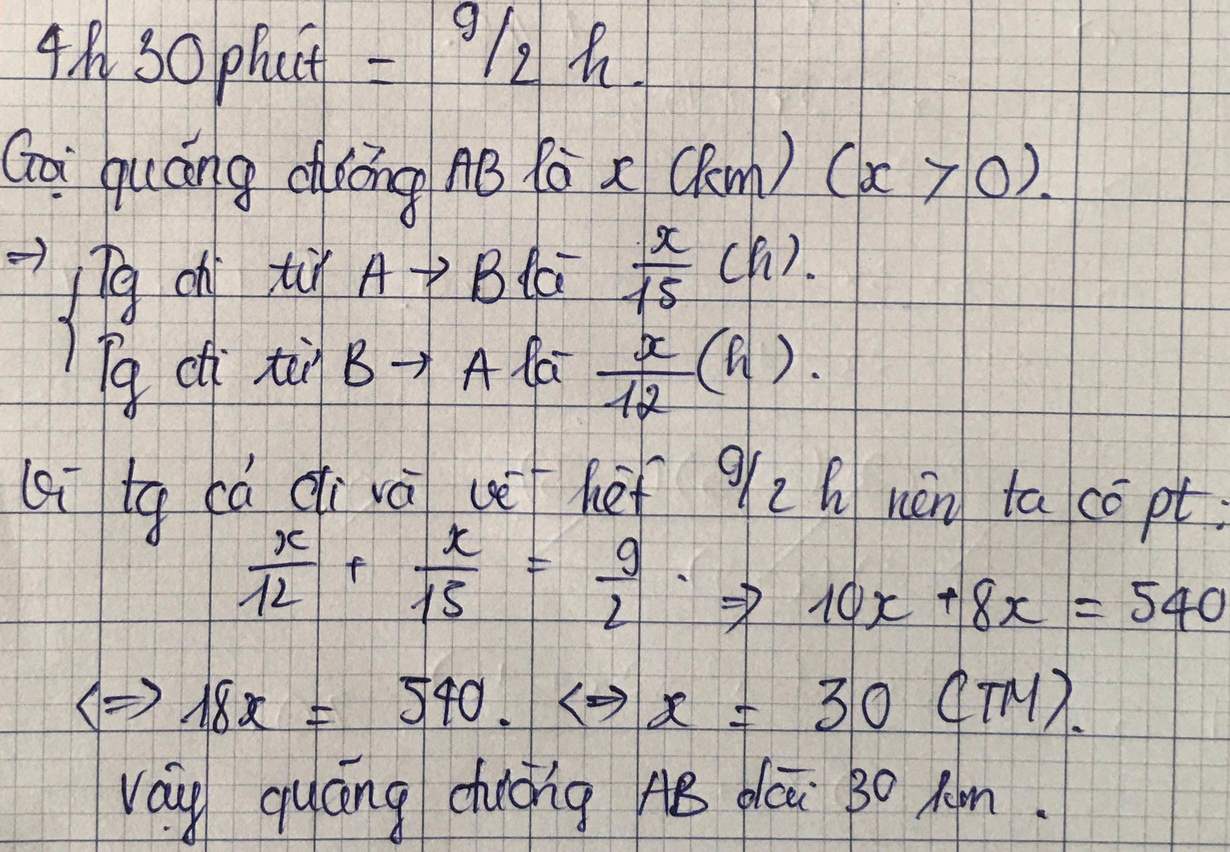 4h 30 phút = 9/2 h.
Gọi quãng đường AB là x (km) (x > 0).
=> { Tg đi từ A → B là x/15 (h).
Tg đi từ B → A là x/12 (h).
Vì tg cả đi và về hết 9/2 h nên ta có pt:
x/12 + x/15 = 9/2 . => 10x + 8x = 540
<=> 18x = 540. <=> x = 30 (TM).
Vậy quãng đường AB dài 30 km.